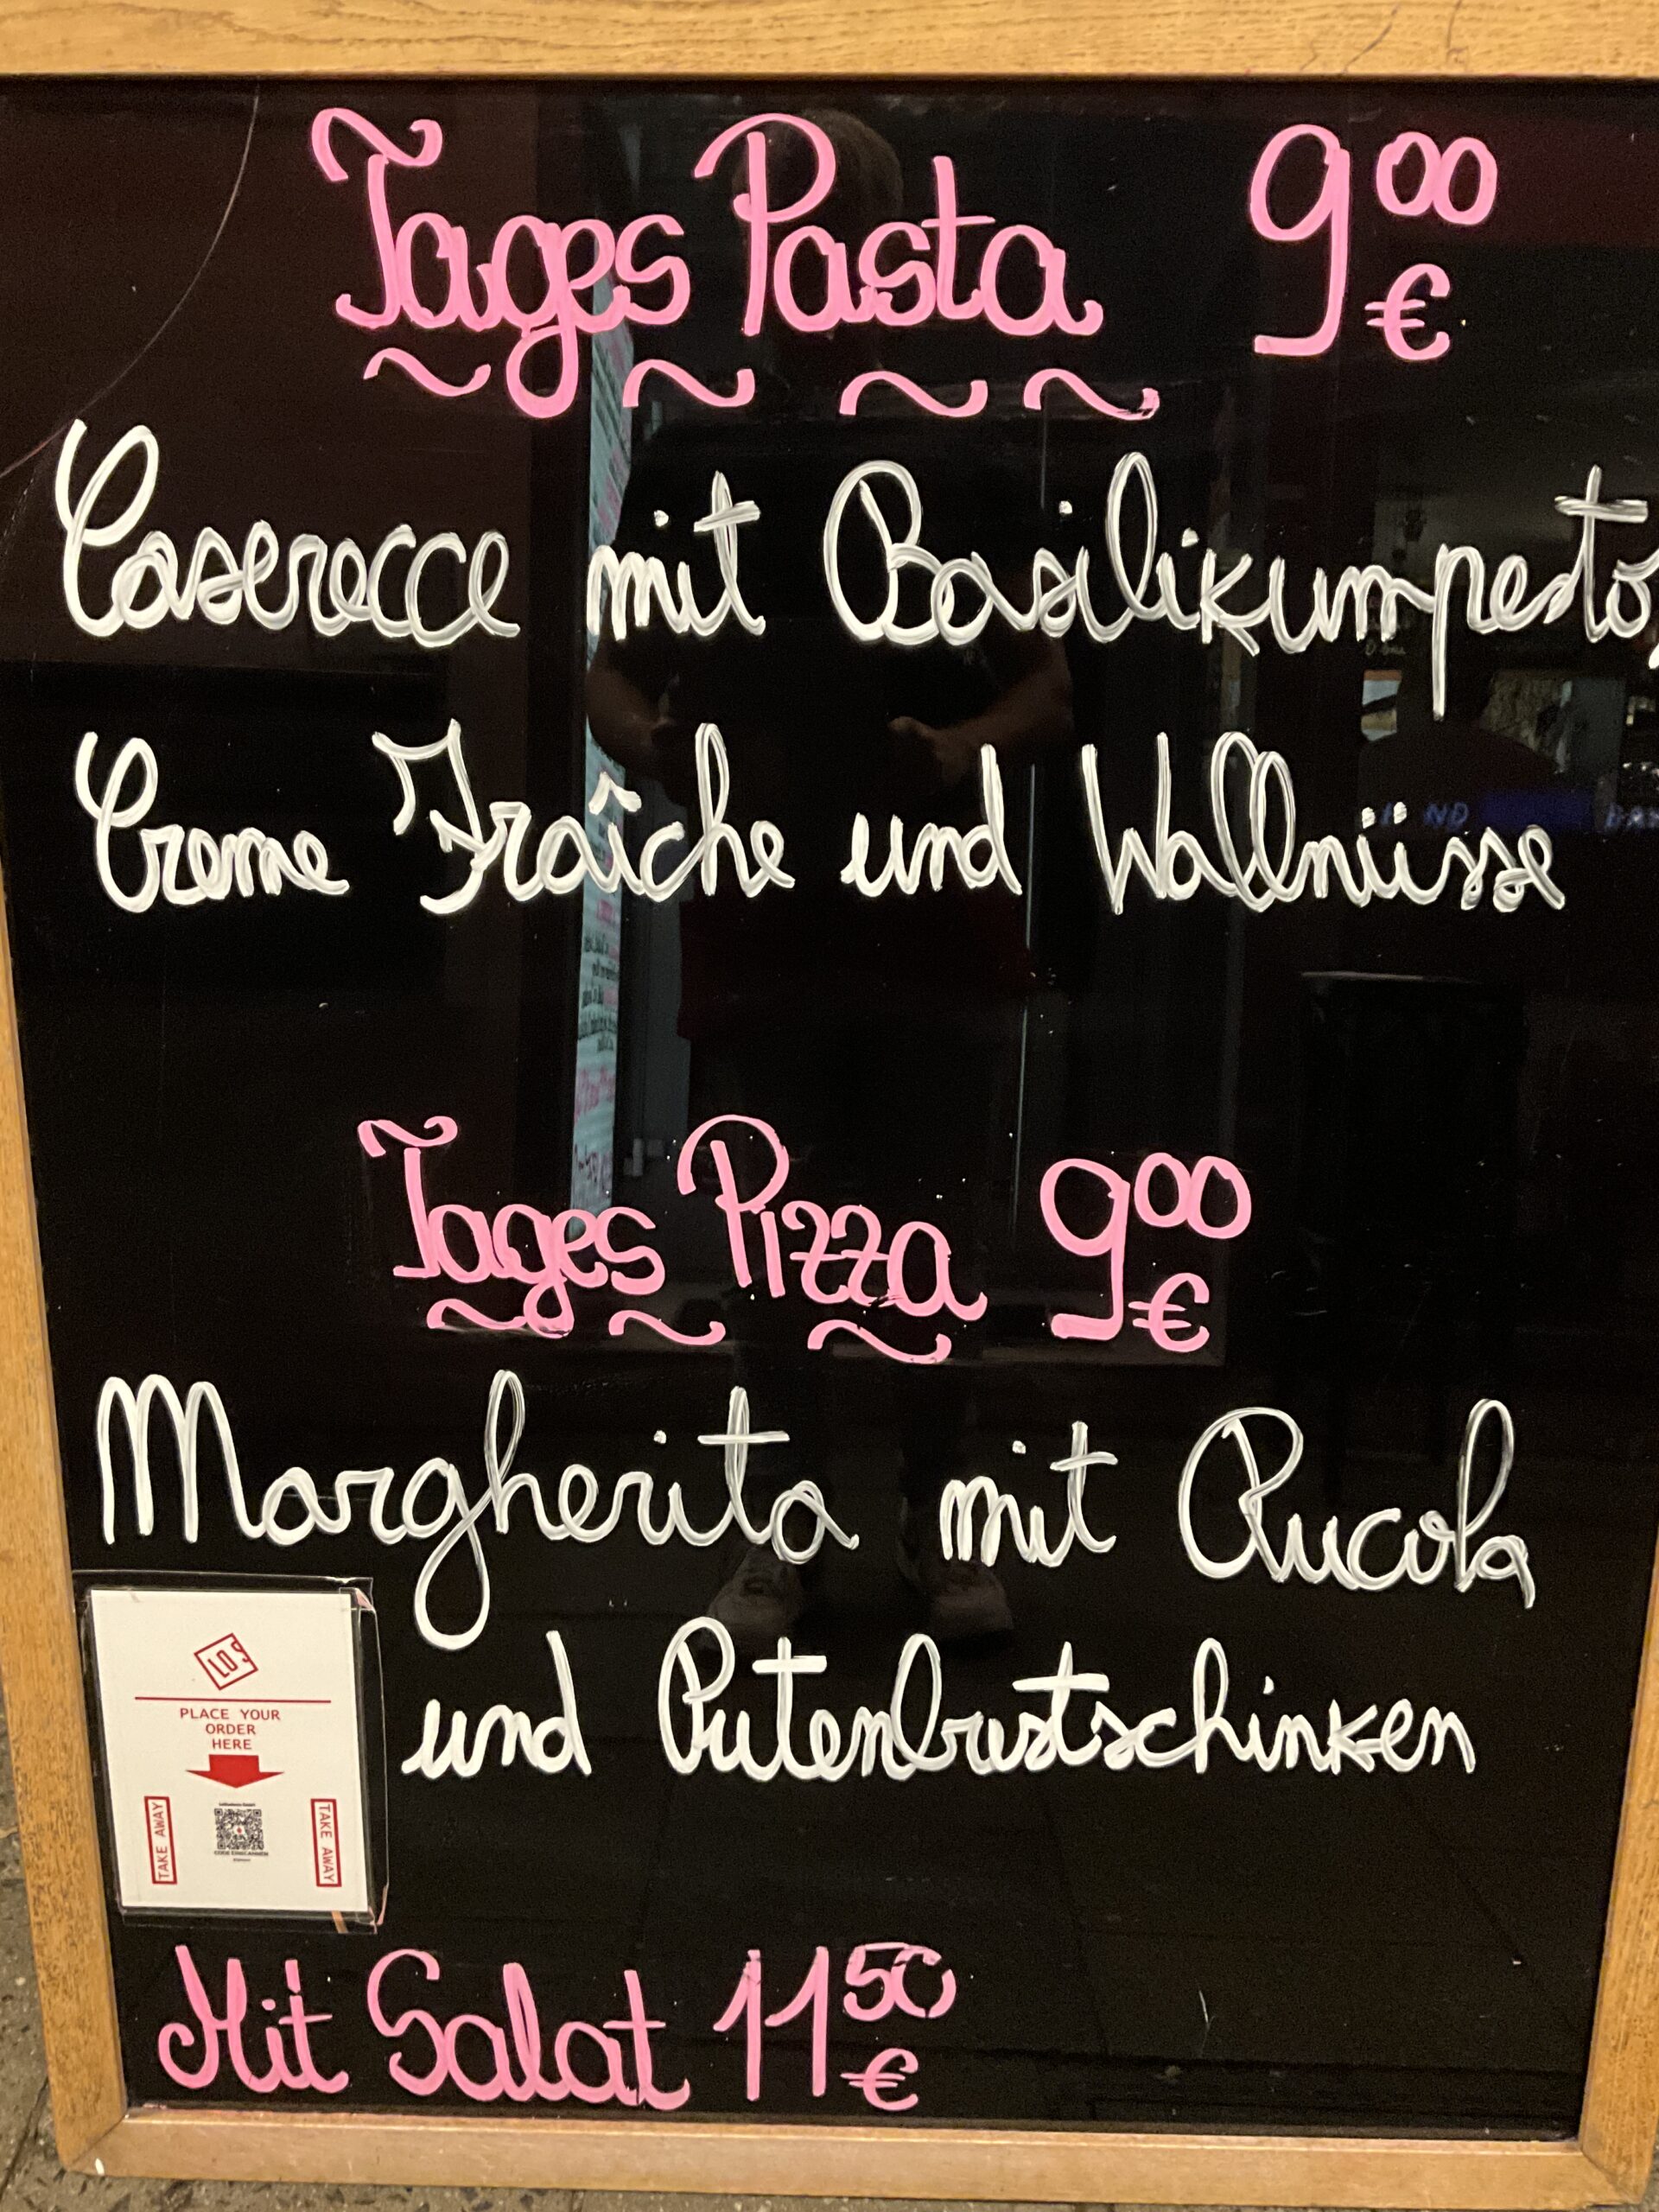 Tages Pasta 9,00 €
Caserecce mit Basilikumpesto,
Creme Fraîche und Wallnüsse
Tages Pizza 9,00 €
Margherita mit Rucola
und Putenbrustschinken
LOS
PLACE YOUR
ORDER
HERE
TAKE AWAY
TAKE AWAY
CODE EINSCANNEN
Mit Salat 11,50 €